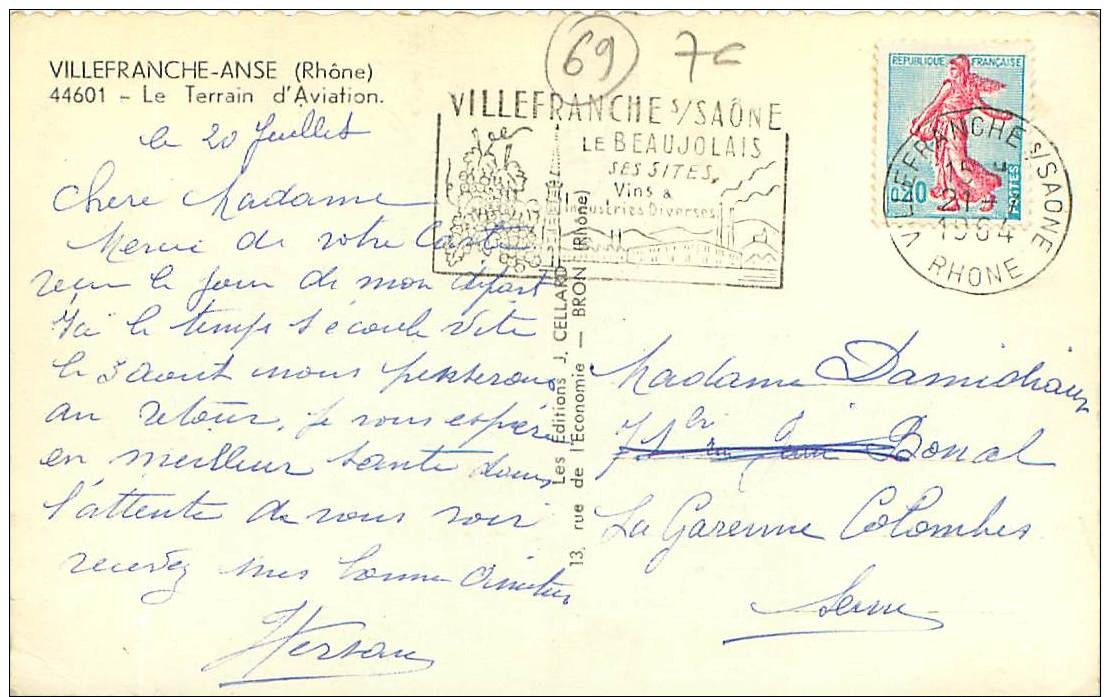 69 7€
VILLEFRANCHE-ANSE (Rhône)
44601 - Le Terrain d'Aviation.
VILLEFRANCHE S/SAÔNE
LE BEAUJOLAIS
SES SITES,
Vins &
Industries Diverses
REPUBLIQUE FRANÇAISE
0,20
POSTES
VILLEFRANCHE S/SAONE
21-7
1964
RHONE
le 20 Juillet
Chere Madame
Merci de votre Carte
recu le jour de mon départ
Ici le temps s'écoule vite
le 3 aout nous penserons
au retour, Je vous espère
en meilleur santé dans
l'attente de vous voir
recevez mes bonne Amitiés
Les Éditions J. CELLARD
13, rue de l'Économie — BRON (Rhône)
Madame
71 Bonal
La Garenne Colombes
Seine